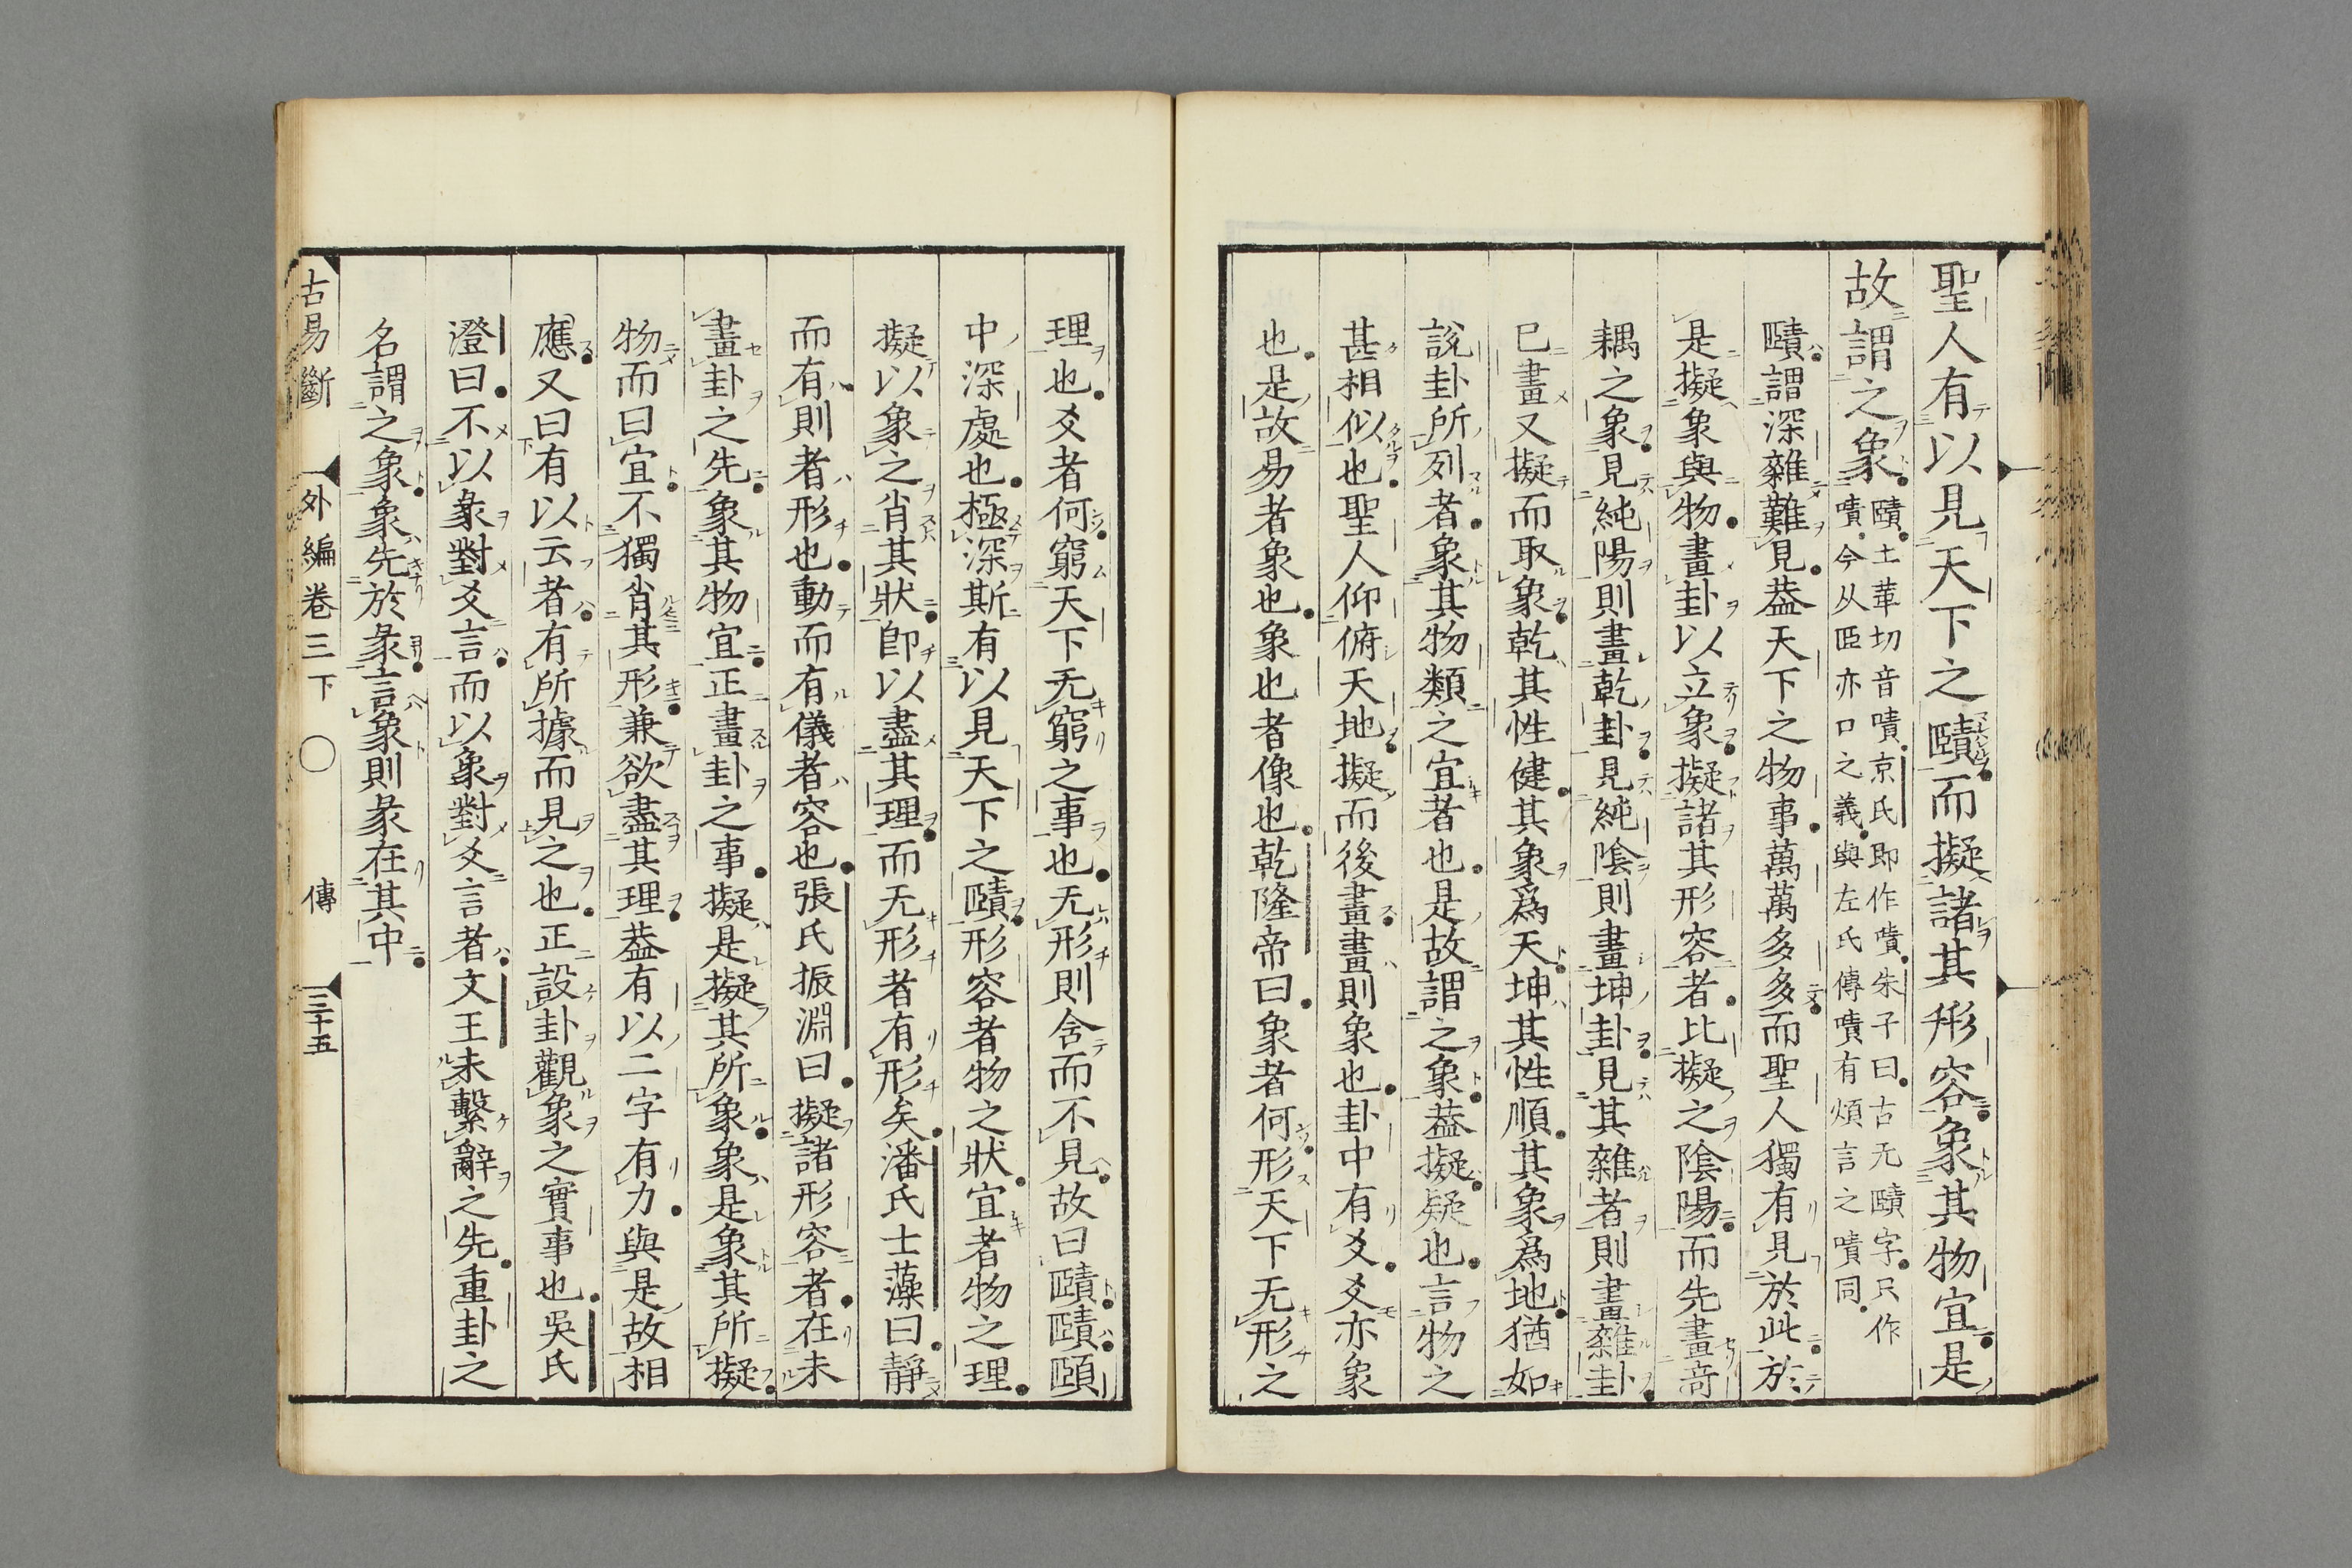 聖人有以見天下之賾而擬諸其形容象其物宜是
故謂之象
賾土革切音嘖京氏即作嘖朱子曰古无賾字只作
嘖今从𦣞亦口之義與左氏傳嘖有煩言之嘖同
賾謂深雜難見葢天下之物事萬萬多多而聖人獨有見於此於
是擬象與物畫卦以立象擬諸其形容者比擬之陰陽而先畫竒
耦之象見純陽則畫乾卦見純陰則畫坤卦見其雜者則畫雜卦
已畫又擬而取象乾其性健其象爲天坤其性順其象爲地猶如
說卦所列者象其物類之宜者也是故謂之象葢擬疑也言物之
甚相似也聖人仰俯天地擬而後畫畫則象也卦中有爻爻亦象
也是故易者象也象也者像也乾隆帝曰象者何形天下无形之
理也爻者何窮天下无窮之事也无形則舍而不見故曰賾賾頤
中深處也極深斯有以見天下之賾形容者物之狀宜者物之理
擬以象之肖其狀即以盡其理而无形者有形矣潘氏士藻曰靜
而有則者形也動而有儀者容也張氏振淵曰擬諸形容者在未
畫卦之先象其物宜正畫卦之事擬是擬其所象象是象其所擬
物而曰宜不獨肖其形兼欲盡其理葢有以二字有力與是故相
應又曰有以云者有所據而見之也正設卦觀象之實事也吳氏
澄曰不以彖對爻言而以象對爻言者文王未繫辭之先重卦之
名謂之象象先於彖言象則彖在其中
古易斷　外編卷三下　〇　傳　三十五